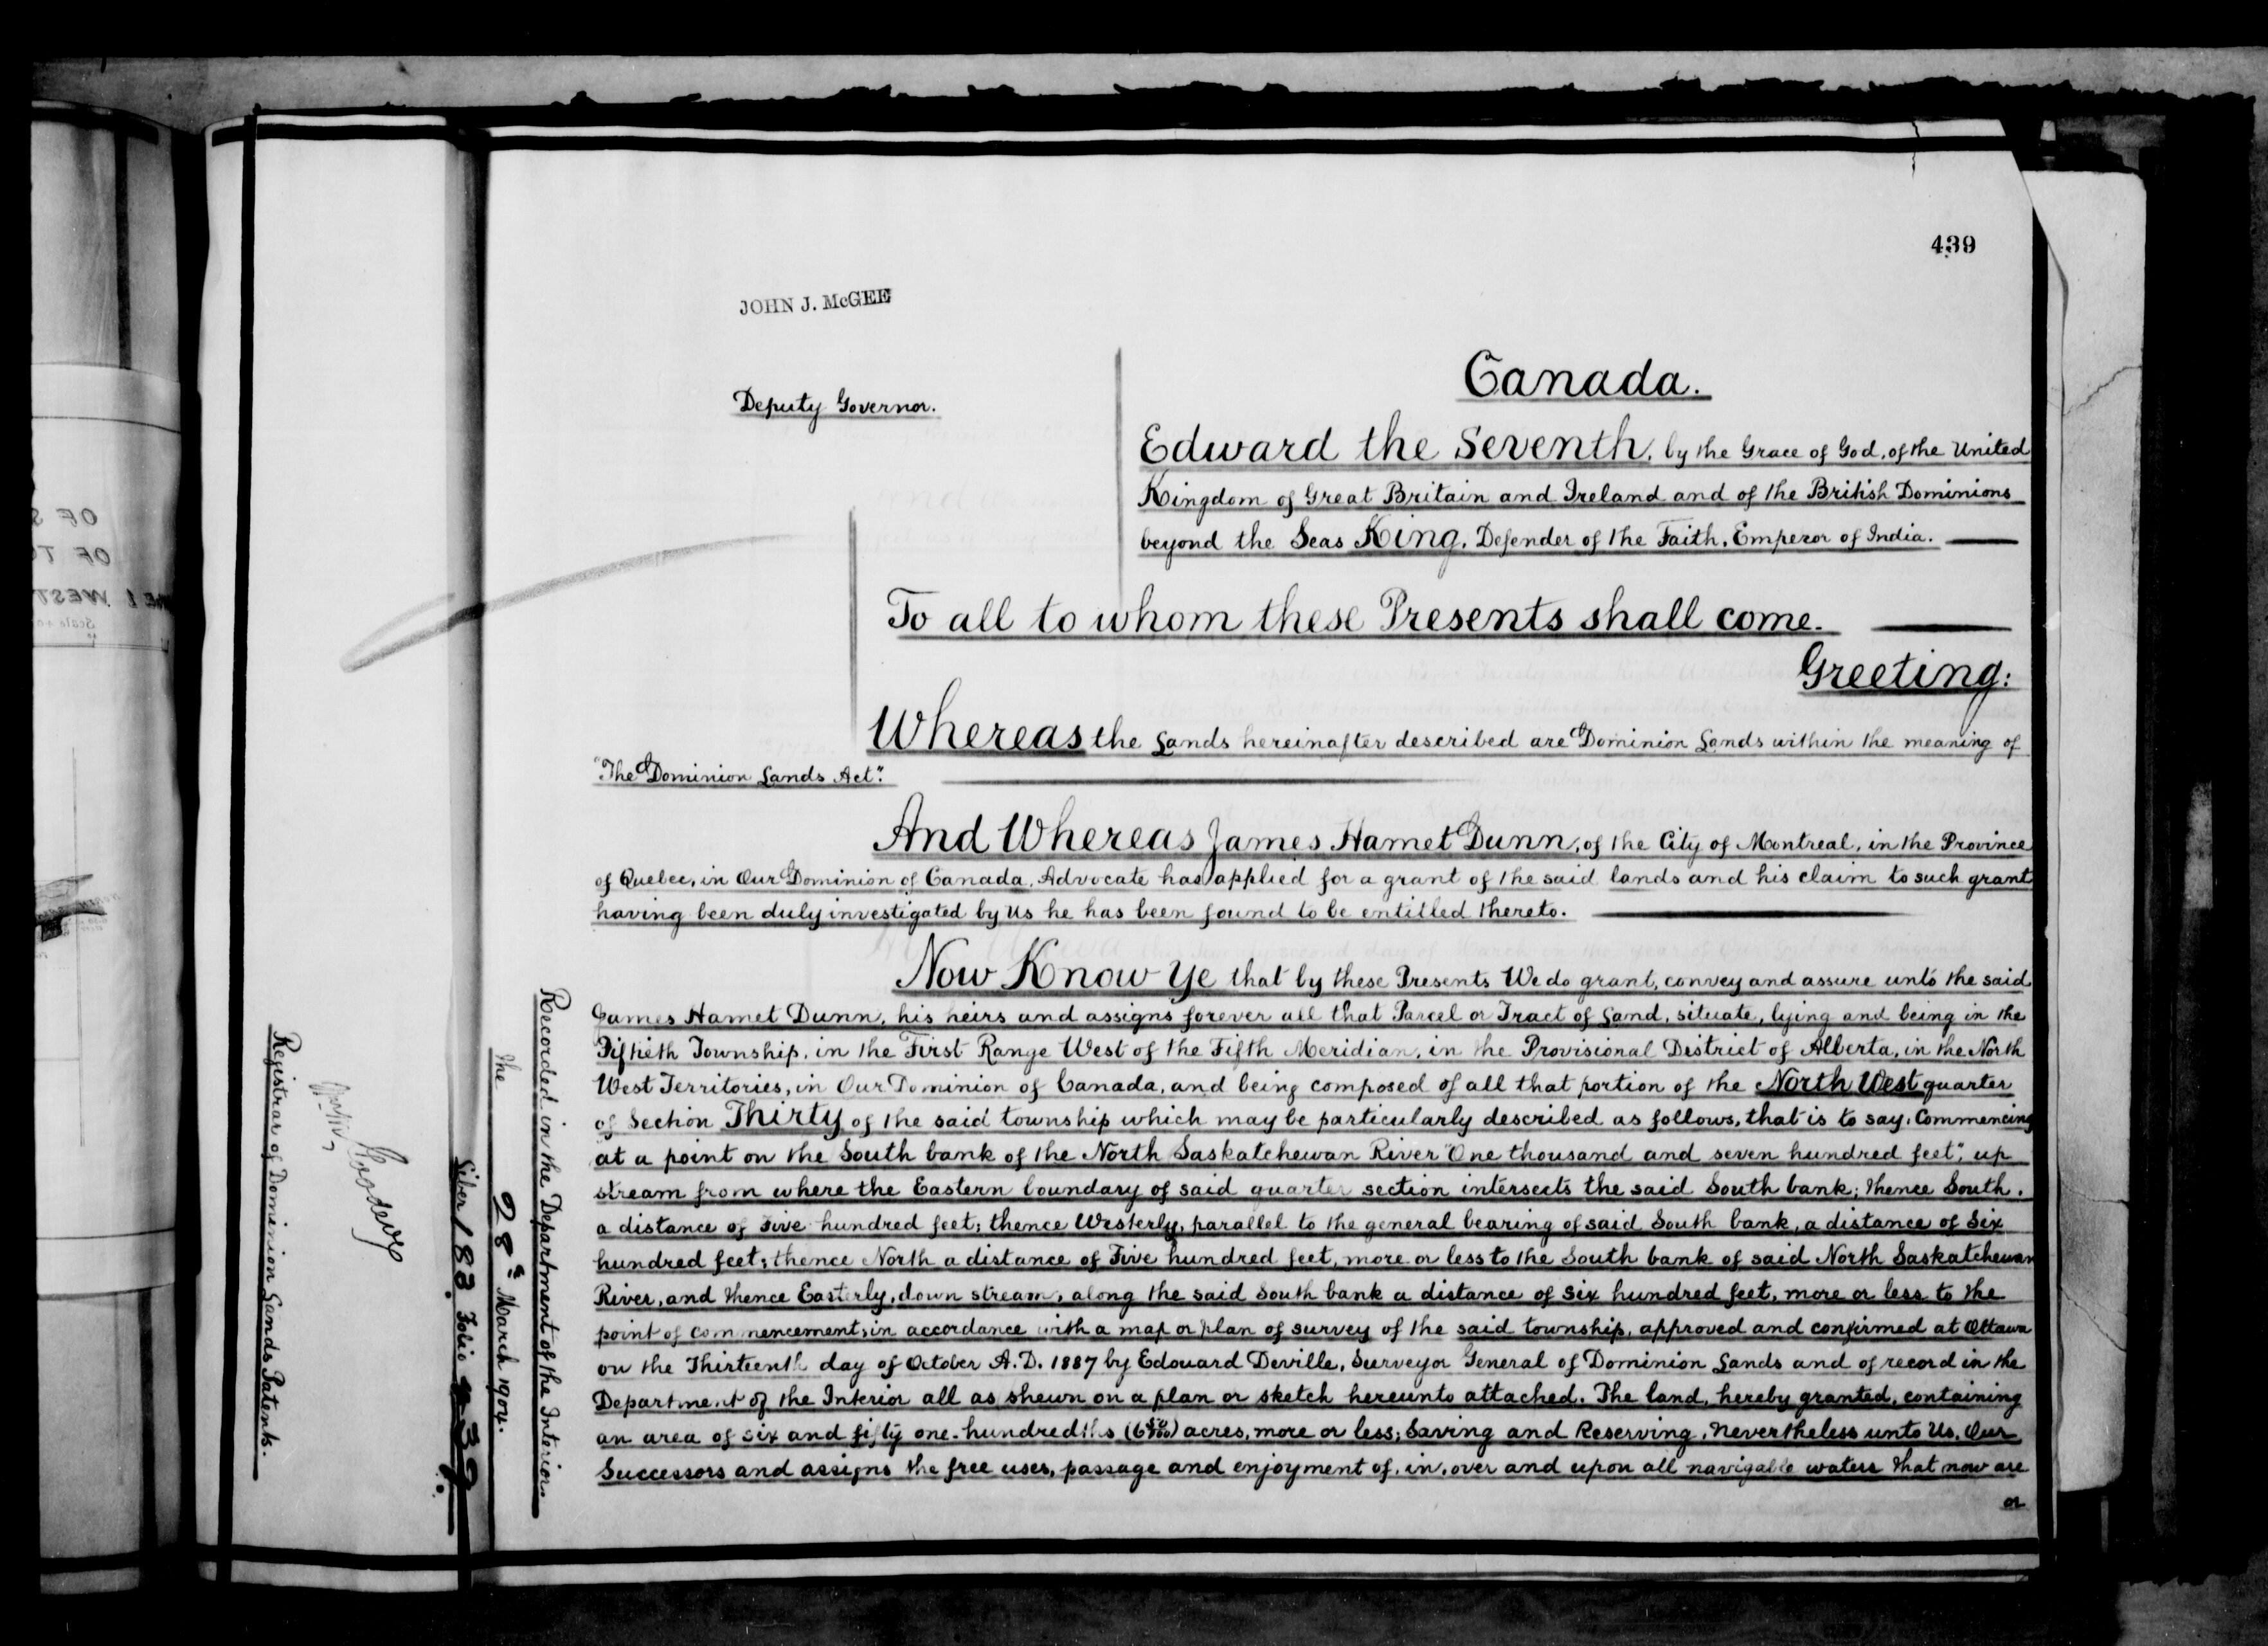 439
JOHN J. McGEE
Deputy Governor.
Canada.
Edward the Seventh, by the Grace of God, of the United
Kingdom of Great Britain and Ireland and of the British Dominions
beyond the Seas King, Defender of the Faith, Emperor of India.
To all to whom these Presents shall come.
Greeting:
Whereas the Lands hereinafter described are Dominion Lands within the meaning of
"The Dominion Lands Act".
And Whereas James Hamet Dunn, of the City of Montreal, in the Province
of Quebec, in Our Dominion of Canada, Advocate has applied for a grant of the said lands and his claim to such grant
having been duly investigated by Us he has been found to be entitled thereto.
Now Know Ye that by these Presents We do grant, convey and assure unto the said
James Hamet Dunn, his heirs and assigns forever all that Parcel or Tract of Land, situate, lying and being in the
Fiftieth Township, in the First Range West of the Fifth Meridian, in the Provisional District of Alberta, in the North
West Territories, in Our Dominion of Canada, and being composed of all that portion of the North West quarter
of Section Thirty of the said township which may be particularly described as follows, that is to say, Commencing
at a point on the South bank of the North Saskatchewan River "One thousand and seven hundred feet", up
stream from where the Eastern boundary of said quarter section intersects the said South bank; thence South.
a distance of Five hundred feet; thence Westerly, parallel to the general bearing of said South bank, a distance of Six
hundred feet; thence North a distance of Five hundred feet, more or less to the South bank of said North Saskatchewan
River, and thence Easterly, down stream, along the said South bank a distance of Six hundred feet, more or less to the
point of commencement; in accordance with a map or plan of survey of the said township, approved and confirmed at Ottawa
on the Thirteenth day of October A.D. 1887 by Edouard Deville, Surveyor General of Dominion Lands and of record in the
Department of the Interior all as shewn on a plan or sketch hereunto attached. The land, hereby granted, containing
an area of six and fifty one-hundredths (6 50/100) acres, more or less; Saving and Reserving, nevertheless unto Us, Our
Successors and assigns the free uses, passage and enjoyment of, in, over and upon all navigable waters that now are
or
Recorded in the Department of the Interior.
the 28th March 1904.
Liber 183 Folio 439.
Registrar of Dominion Lands Patents.
OF
OF
WEST
Scale